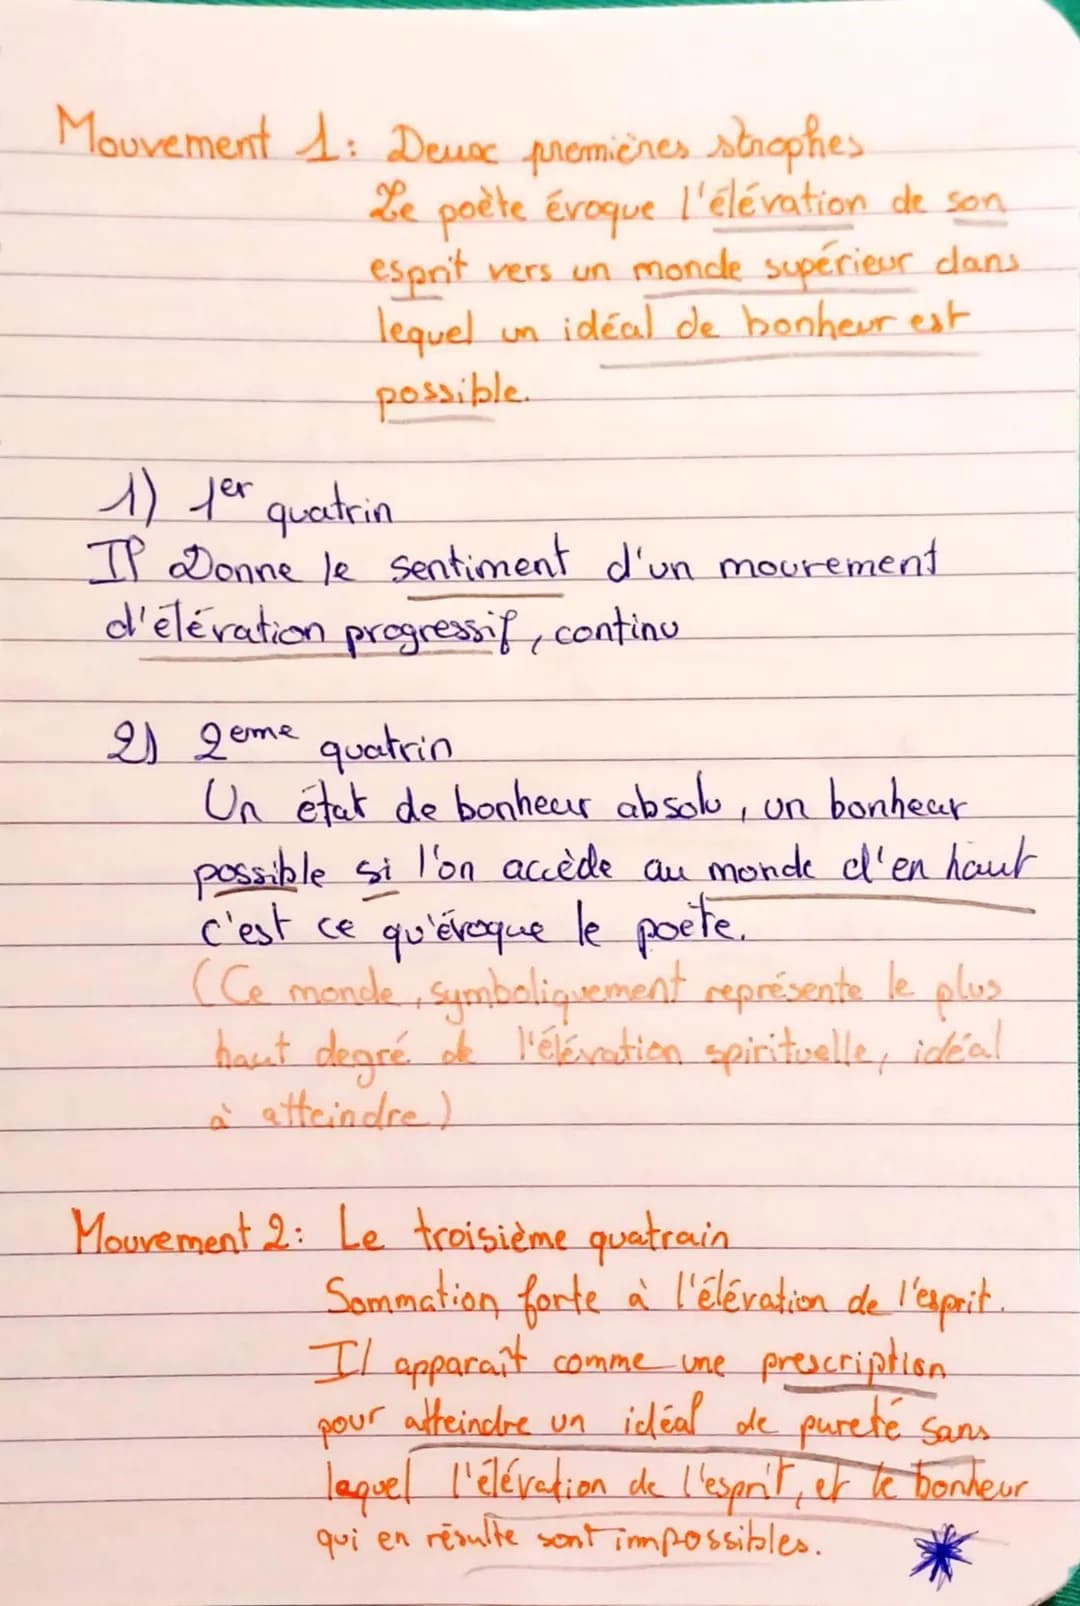 Mouvement 1: Deux premières strophes
Le poète évoque l'élévation de son
esprit vers un monde supérieur dans
lequel un idéal de bonheur est
possible.
1) 1er quatrin
Il Donne le sentiment d'un mouvement
d'élévation progressif, continu
2) 2eme quatrin
Un état de bonheur absolu, un bonheur
possible si l'on accède au monde d'en haut
c'est ce qu'évoque le poète.
(Ce monde, symboliquement représente le plus
haut degré de l'élévation spirituelle, idéal
à atteindre)
Mouvement 2: Le troisième quatrain
Sommation forte à l'élévation de l'esprit.
Il apparaît comme une prescription
pour atteindre un idéal de pureté sans
laquel l'élévation de l'esprit, et le bonheur
qui en résulte sont impossibles.